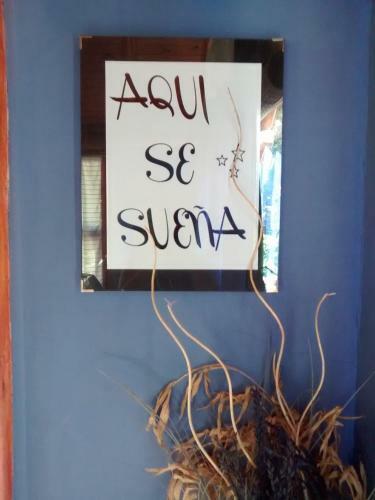 AQUI
SE
SUEÑA